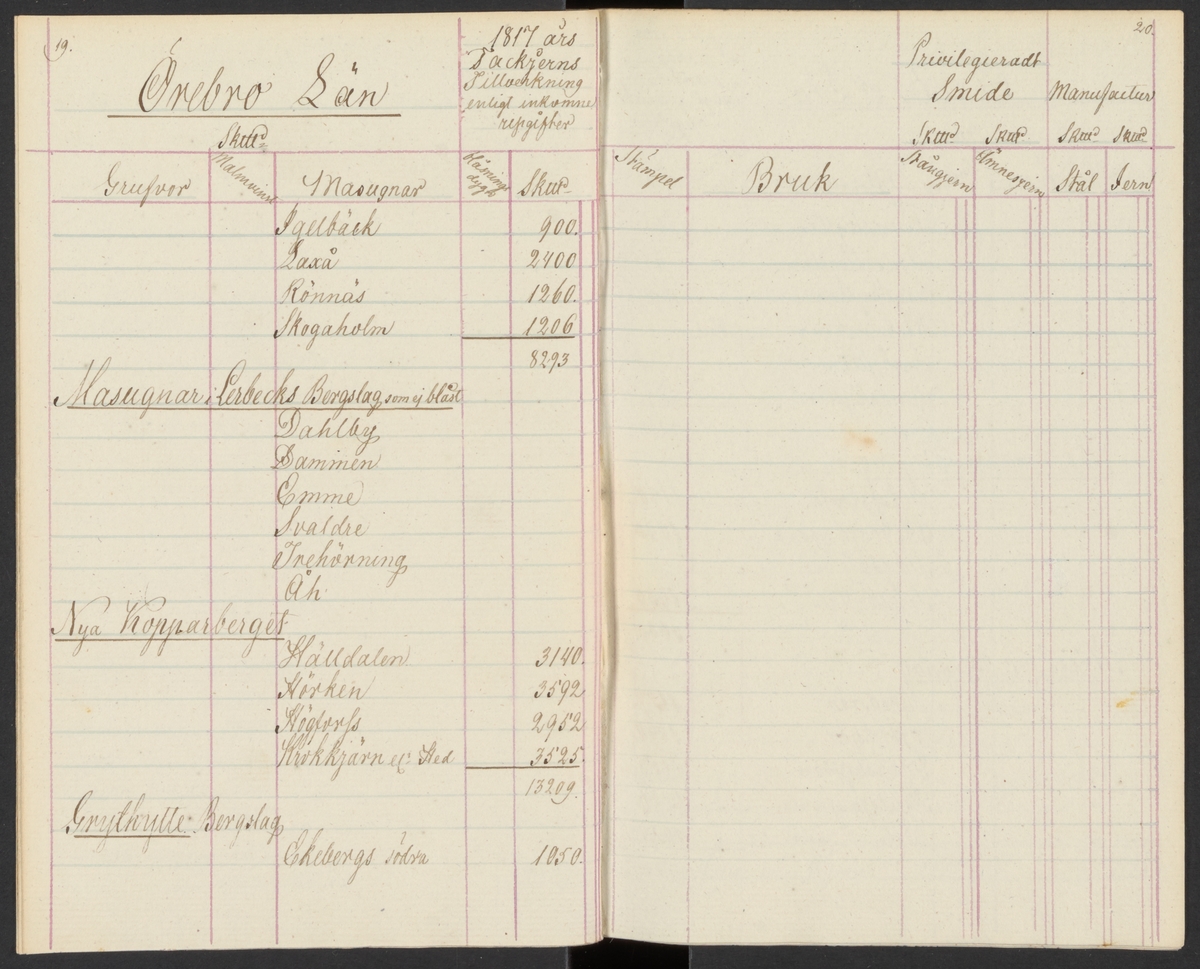 19.
Örebro Län
1817 års
Tackjerns
Tillverkning
enligt inkomne
uppgifter
Skttd
Grufvor Malmvinst Masugnar blåsnings dygn Sktd
Igelbäck 900.
Laxå 2400
Rönnäs 1260.
Skogaholm 1206
8293
Masugnar i Lerbecks Bergslag som ej blåst
Dahlby
Dammen
Emme
Svaldre
Trehörning
Åh
Nya Kopparberget
Hälldalen 3140.
Hörken 3592
Högforss 2952
Krokkjärn Hed 3525.
13209.
Grythytte Bergslag
Ekebergs södra 1050.
20.
Privilegieradt
Smide Manufactur
Skttd Skttd Skttd Skttd
Stämpel Bruk Stångjern Ämnesjern Stål Jern